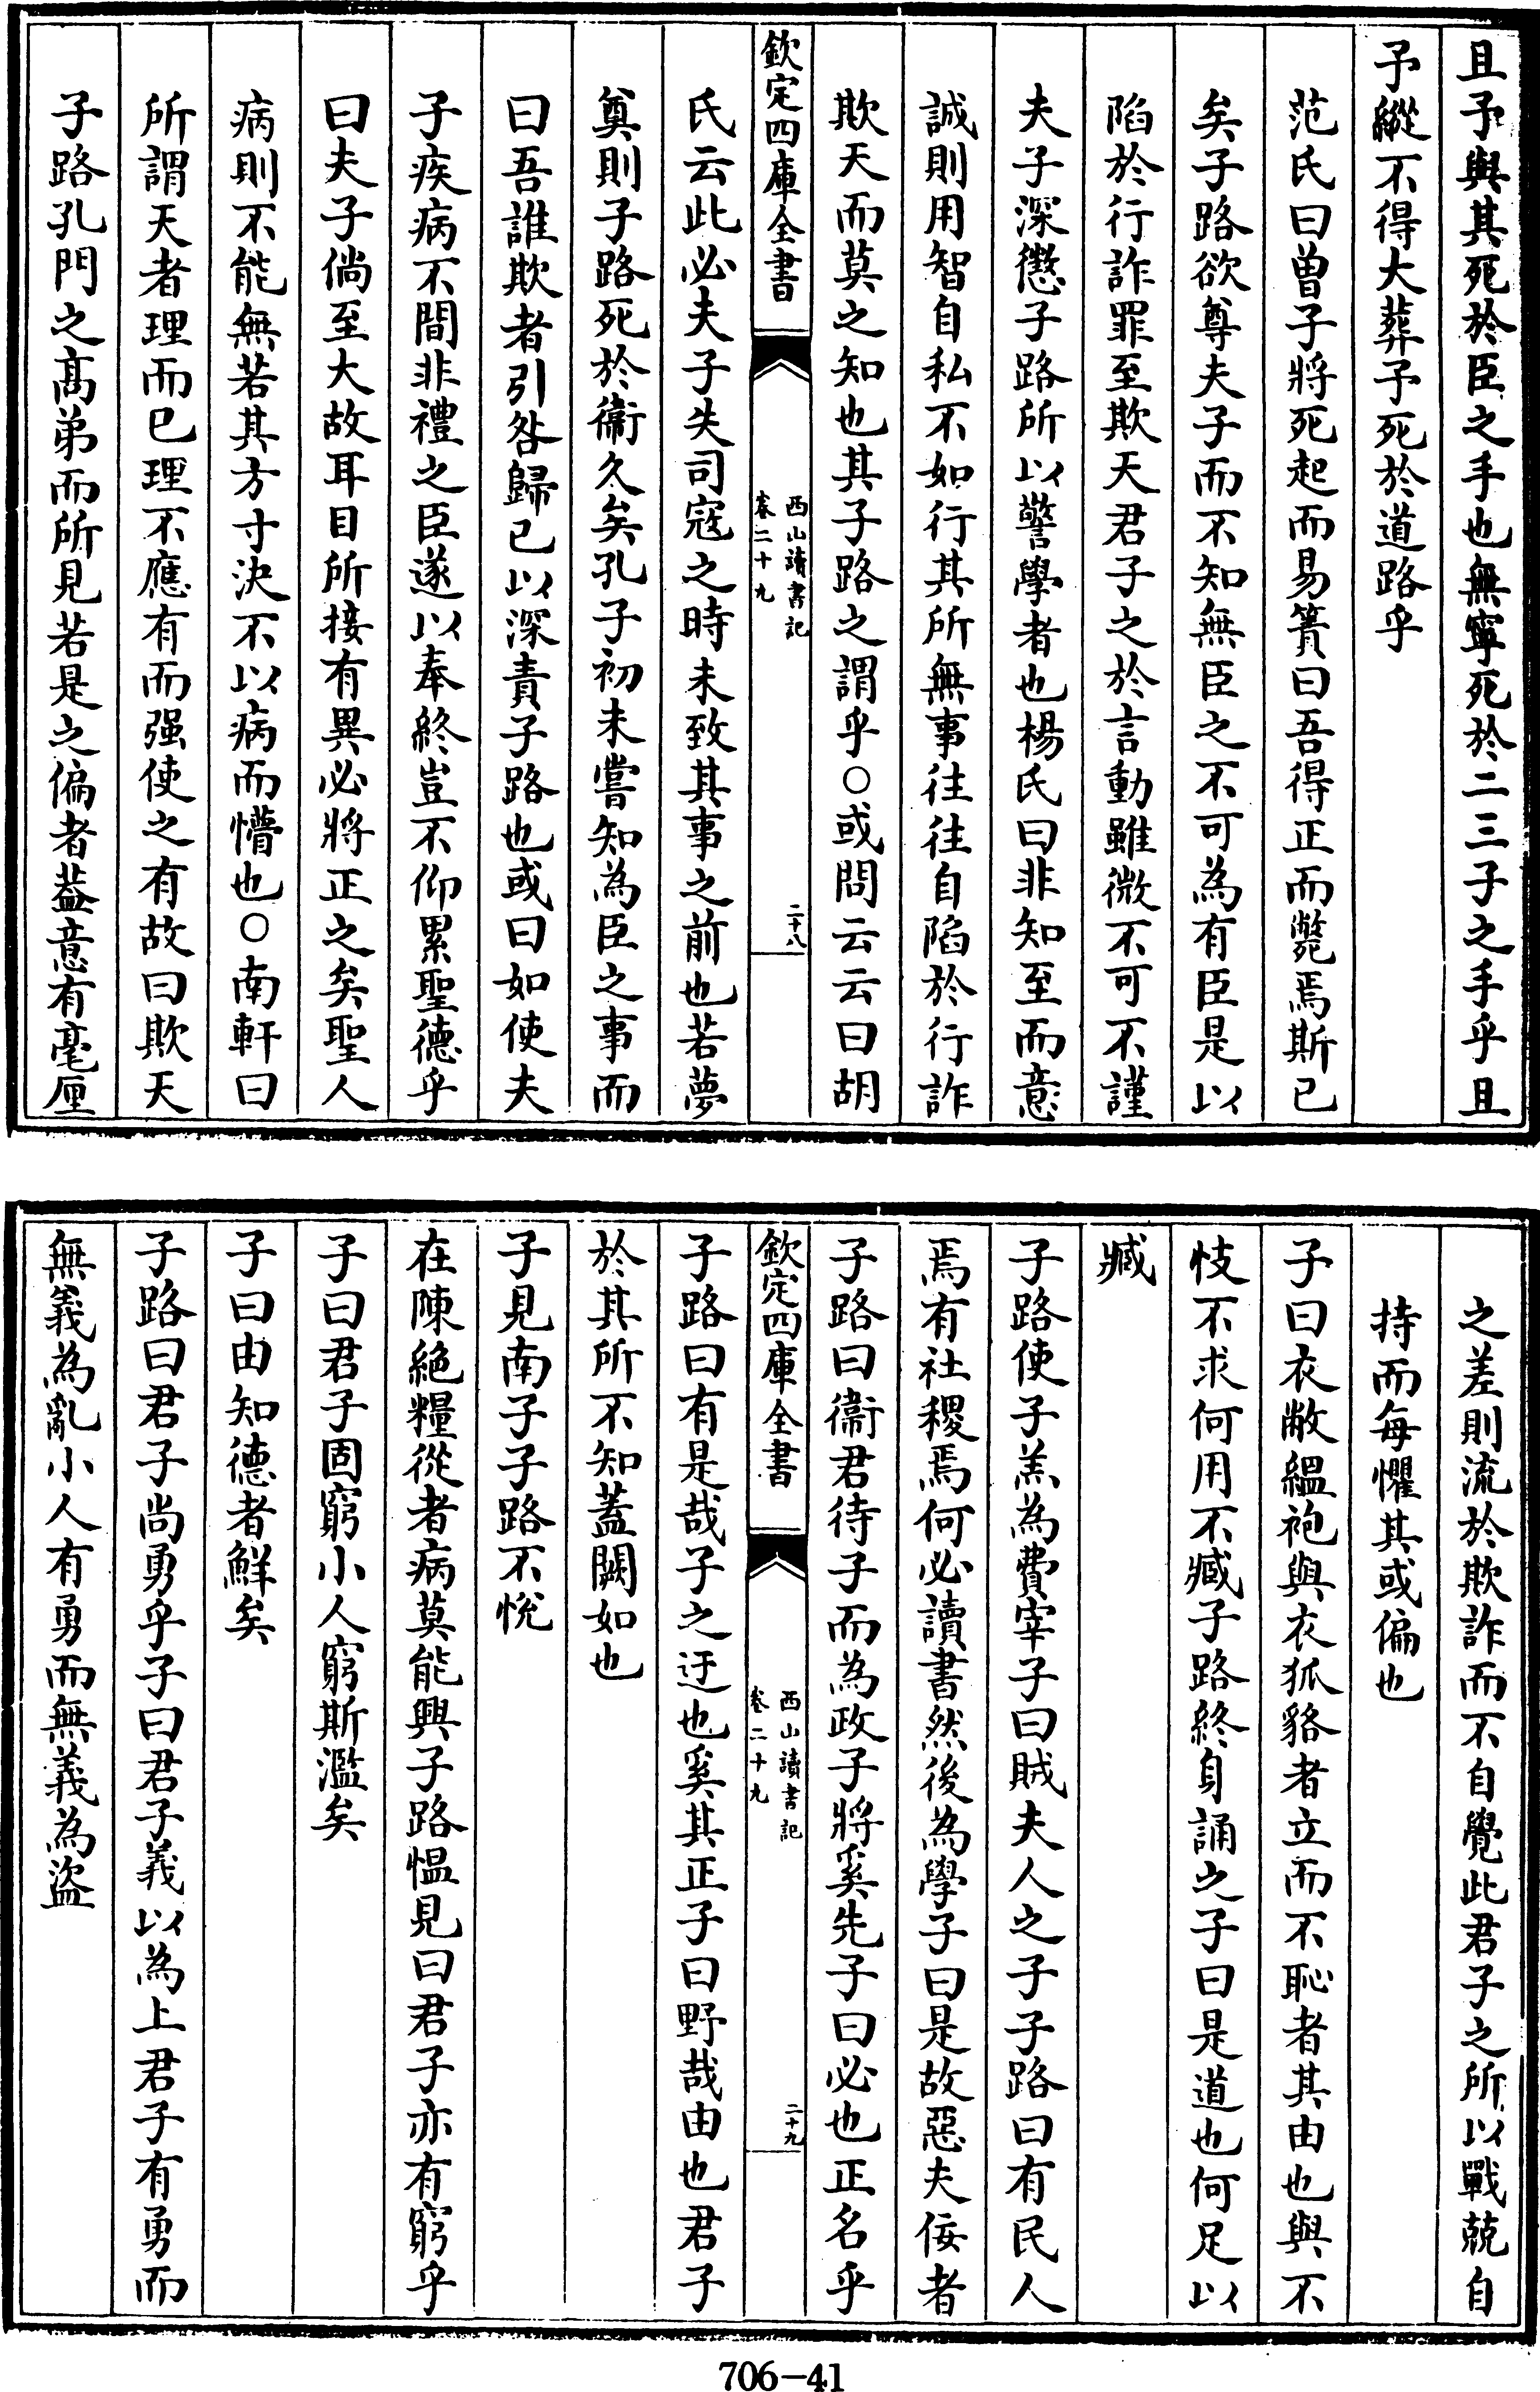 且予與其死於臣之手也無寧死於二三子之手乎且
予縱不得大葬予死於道路乎
范氏曰曽子將死起而易簀曰吾得正而斃焉斯已
矣子路欲尊夫子而不知無臣之不可為有臣是以
陷於行詐罪至欺天君子之於言動雖微不可不謹
夫子深懲子路所以警學者也楊氏曰非知至而意
誠則用智自私不如行其所無事往往自陷於行詐
欺天而莫之知也其子路之謂乎○或問云云曰胡
欽定四庫全書
西山讀書記
卷二十九
二十八
氏云此必夫子失司寇之時未致其事之前也若夢
奠則子路死於衞久矣孔子初未嘗知為臣之事而
曰吾誰欺者引咎歸已以深責子路也或曰如使夫
子疾病不間非禮之臣遂以奉終豈不仰累聖德乎
曰夫子倘至大故耳目所接有異必將正之矣聖人
病則不能無若其方寸決不以病而懵也○南軒曰
所謂天者理而已理不應有而强使之有故曰欺天
子路孔門之髙弟而所見若是之偏者葢意有毫厘
之差則流於欺詐而不自覺此君子之所以戰兢自
持而每懼其或偏也
子曰衣敝緼袍與衣狐貉者立而不恥者其由也與不
忮不求何用不臧子路終身誦之子曰是道也何足以
臧
子路使子羔為費宰子曰賊夫人之子子路曰有民人
焉有社稷焉何必讀書然後為學子曰是故惡夫佞者
子路曰衞君待子而為政子將奚先子曰必也正名乎
欽定四庫全書
西山讀書記
卷二十九
二十九
子路曰有是哉子之迂也奚其正子曰野哉由也君子
於其所不知蓋闕如也
子見南子子路不悅
在陳絶糧從者病莫能興子路愠見曰君子亦有窮乎
子曰君子固窮小人窮斯濫矣
子曰由知德者鮮矣
子路曰君子尚勇乎子曰君子義以為上君子有勇而
無義為亂小人有勇而無義為盜
706-41